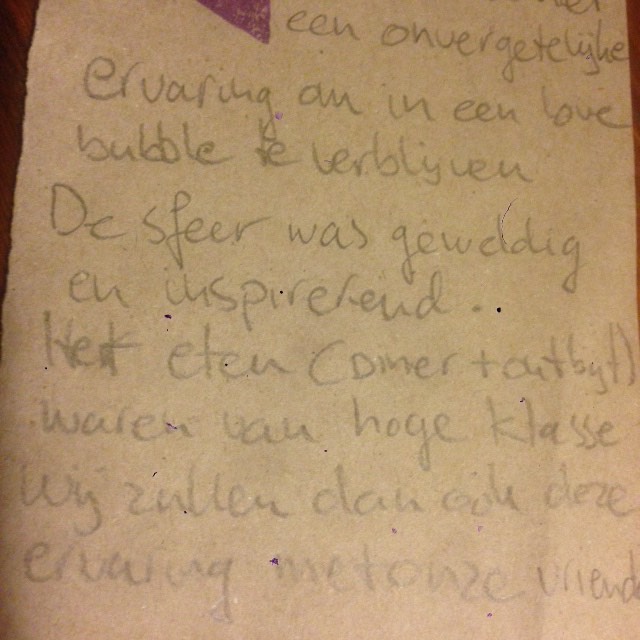 een onvergetelijke
ervaring om in een love
bubble te verblijven
De sfeer was geweldig
en inspirerend.
Het eten (Diner + ontbijt)
waren van hoge klasse
Wij zullen dan ook deze
ervaring met onze vriend